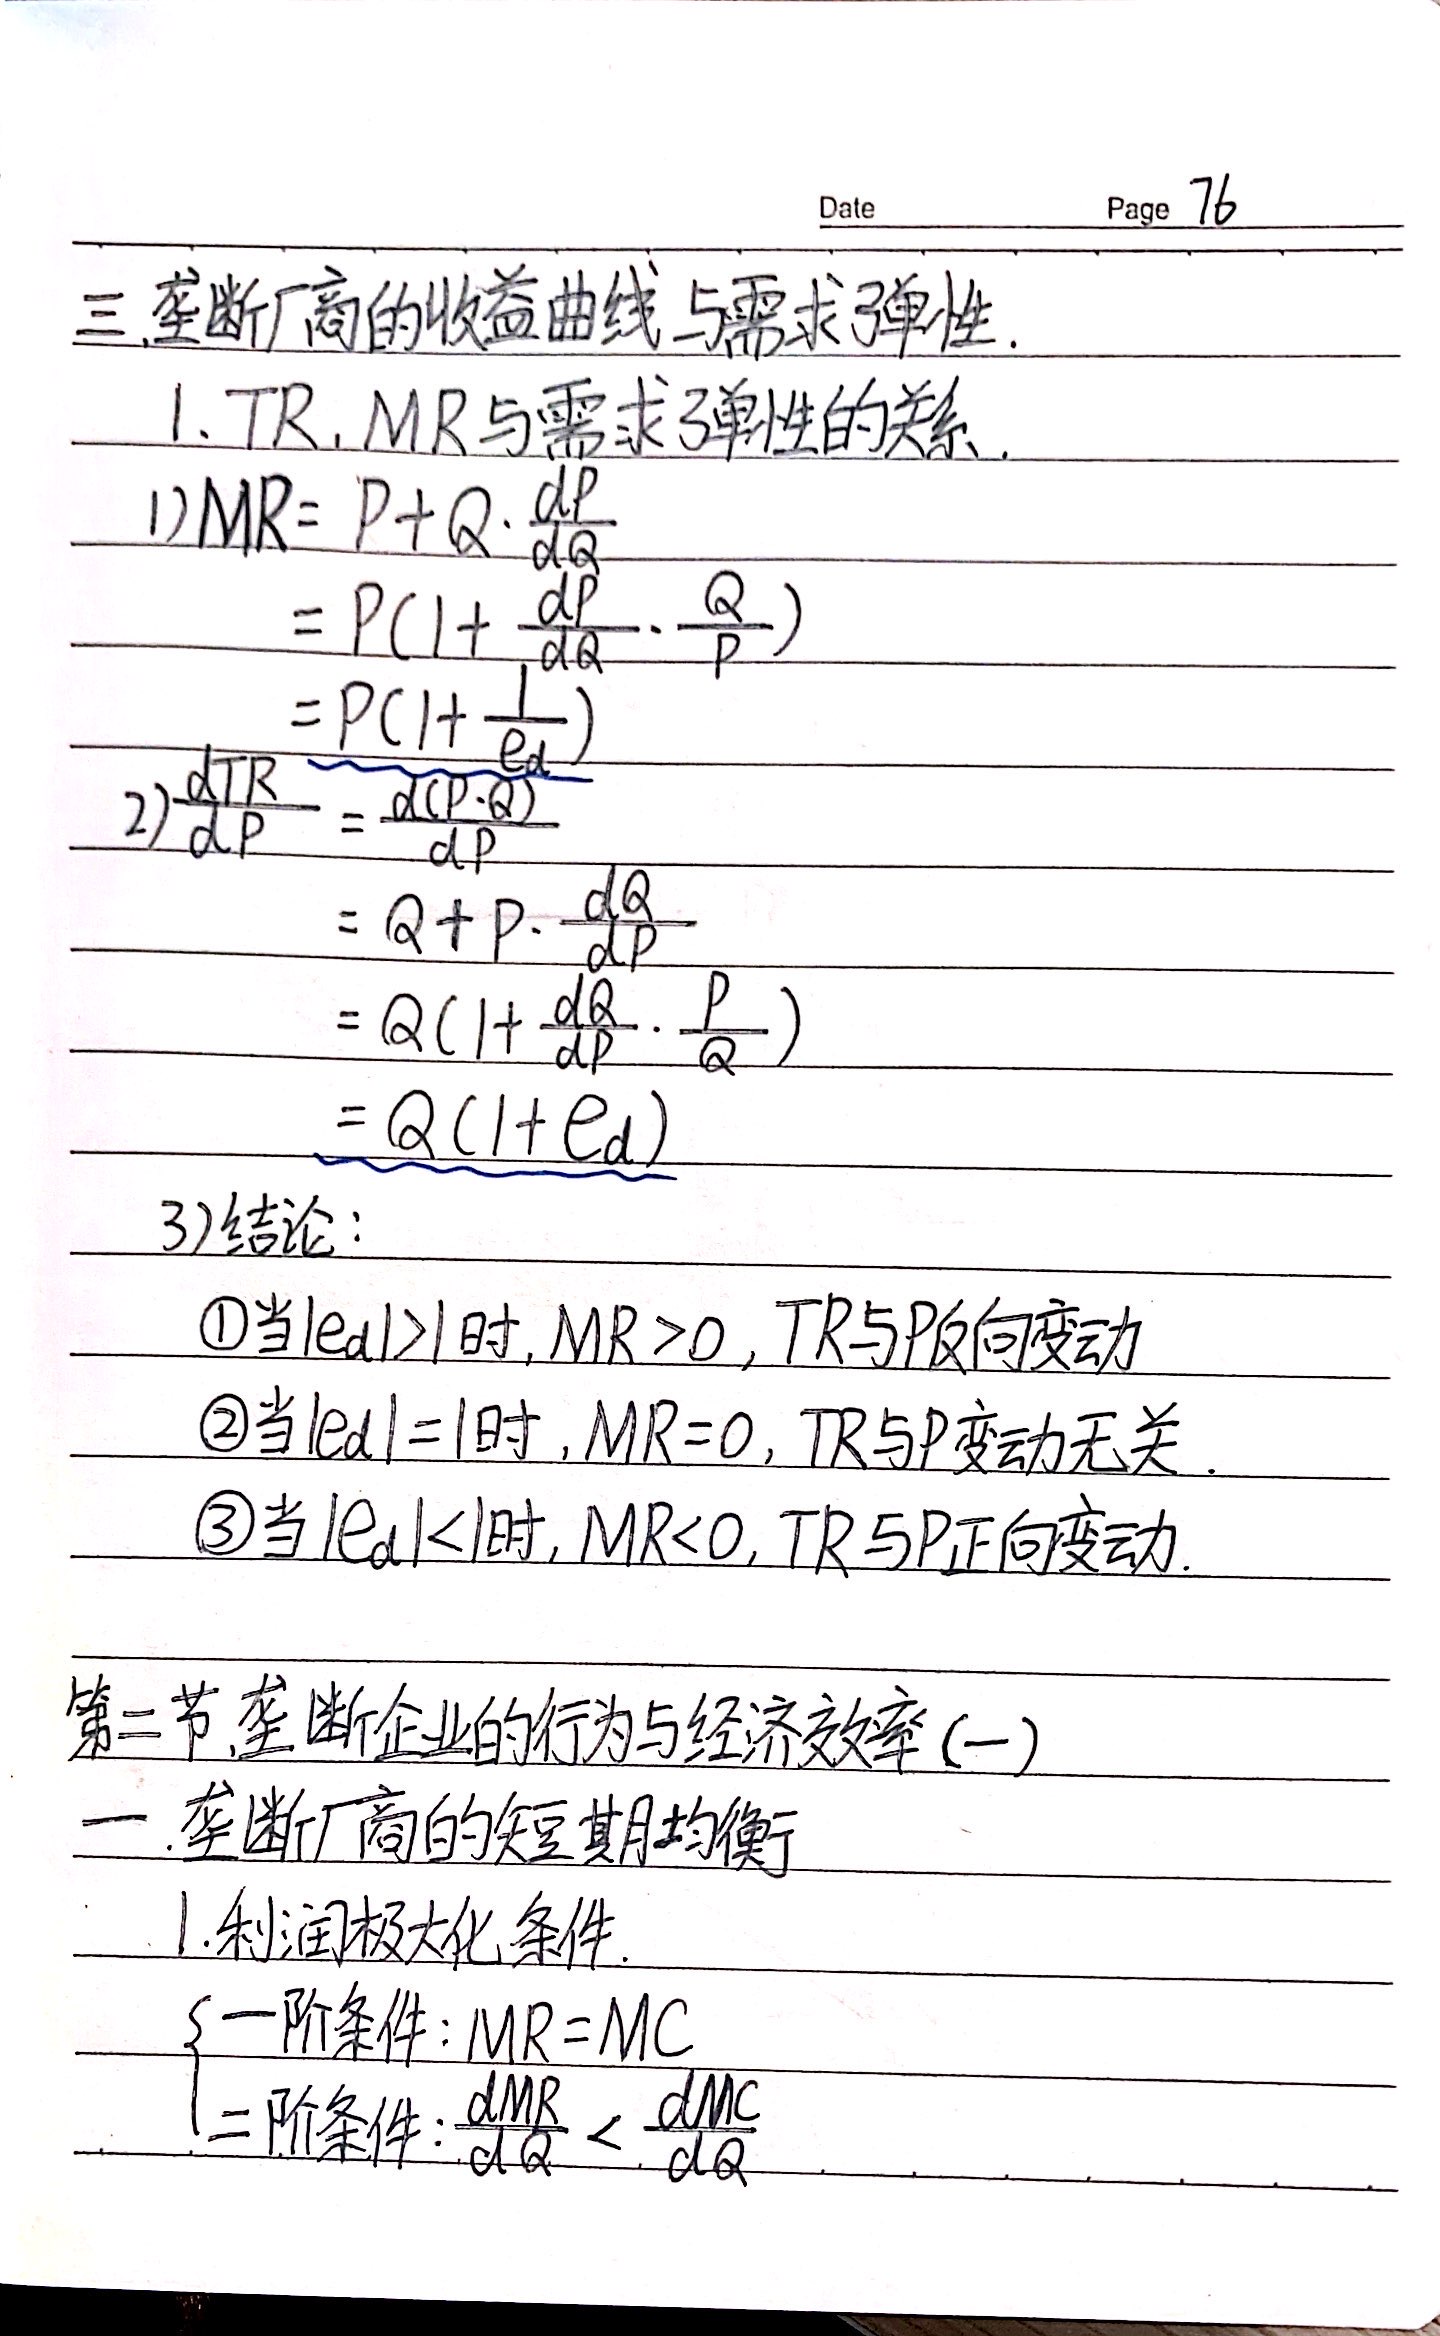 Date Page 76
三.垄断厂商的收益曲线与需求弹性.
1.TR,MR与需求弹性的关系.
1)MR=P+Q·dP/dQ
=P(1+dP/dQ·Q/P)
=P(1+1/ed)
2)dTR/dP=d(P·Q)/dP
=Q+P·dQ/dP
=Q(1+dQ/dP·P/Q)
=Q(1+ed)
3)结论:
①当|ed|>1时,MR>0,TR与P反向变动
②当|ed|=1时,MR=0,TR与P变动无关.
③当|ed|<1时,MR<0,TR与P正向变动.
第二节.垄断企业的行为与经济效率(一)
一.垄断厂商的短期均衡
1.利润极大化条件.
{一阶条件:MR=MC
二阶条件:dMR/dQ<dMC/dQ